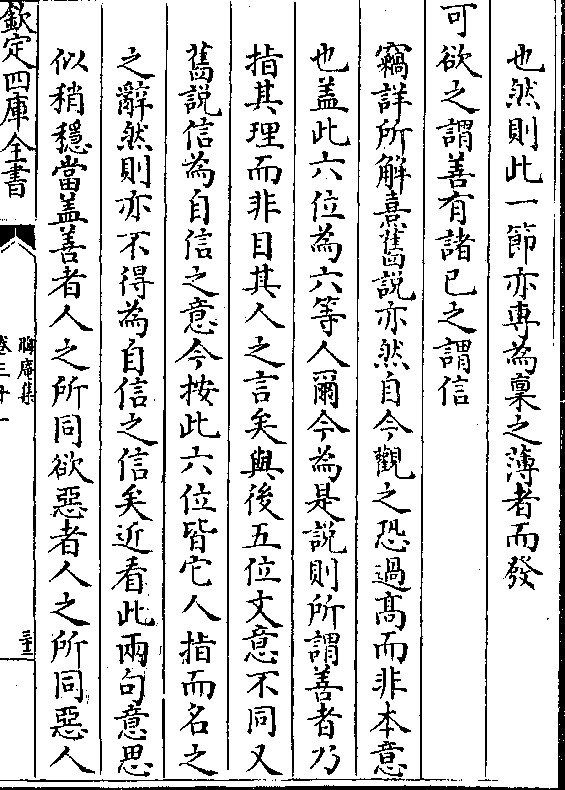 也然則此一節亦專為稟之薄者而發
可欲之謂善有諸己之謂信
竊詳所解熹舊說亦然自今觀之恐過高而非本意
也蓋此六位為六等人爾今為是說則所謂善者乃
指其理而非目其人之言矣與後五位文意不同又
舊說信為自信之意今按此六位皆它人指而名之
之辭然則亦不得為自信之信矣近看此兩句意思
似稍穩當蓋善者人之所同欲惡者人之所同惡人
欽定四庫全書
晦庵集
卷三十一